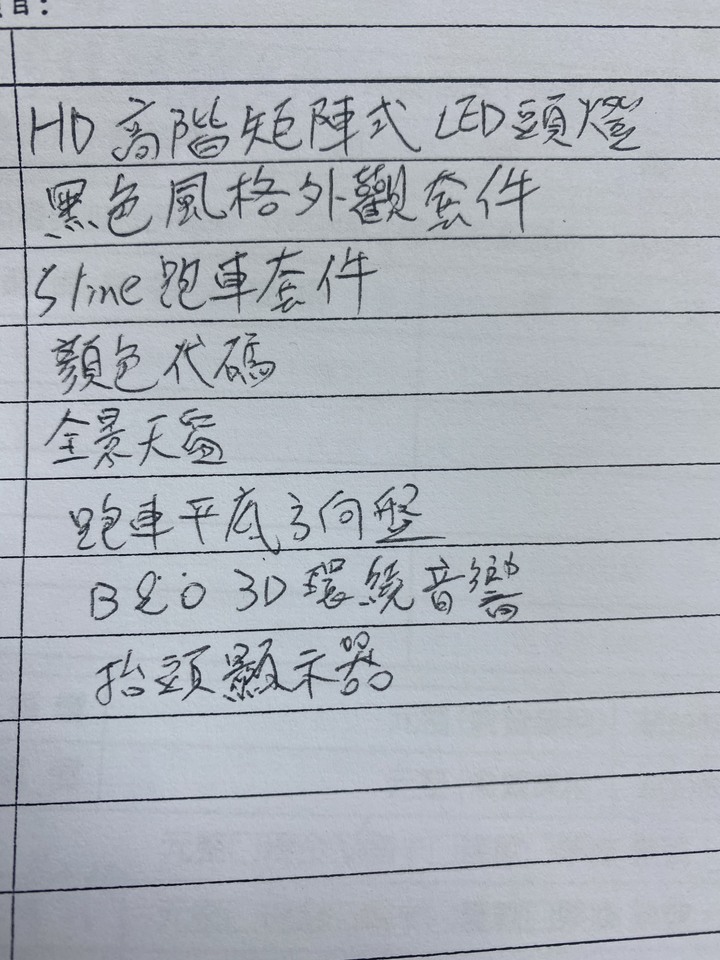 HD 高階矩陣式 LED頭燈
黑色風格外觀套件
S line 跑車套件
顏色代碼
全景天窗
跑車平底方向盤
B&O 3D 環繞音響
抬頭顯示器